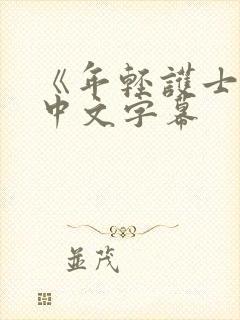 《年轻護士
中文字幕
並茂